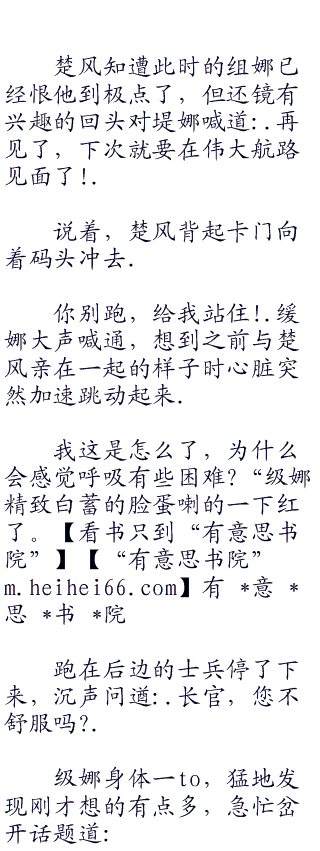 楚风知遭此时的组娜已
经恨他到极点了，但还镜有
兴趣的回头对堤娜喊道:.再
见了，下次就要在伟大航路
见面了!.
说着，楚风背起卡门向
着码头冲去.
你别跑，给我站住!.缓
娜大声喊通，想到之前与楚
风亲在一起的样子时心脏突
然加速跳动起来.
我这是怎么了，为什么
会感觉呼吸有些困难?“级娜
精致白蓄的脸蛋喇的一下红
了。【看书只到“有意思书
院”】【“有意思书院”
m.heihei66.com】有 *意 *
思 *书 *院
跑在后边的士兵停了下
来，沉声问遒:.长官，您不
舒服吗?.
级娜身体一to，猛地发
现刚才想的有点多，急忙岔
开话题道: